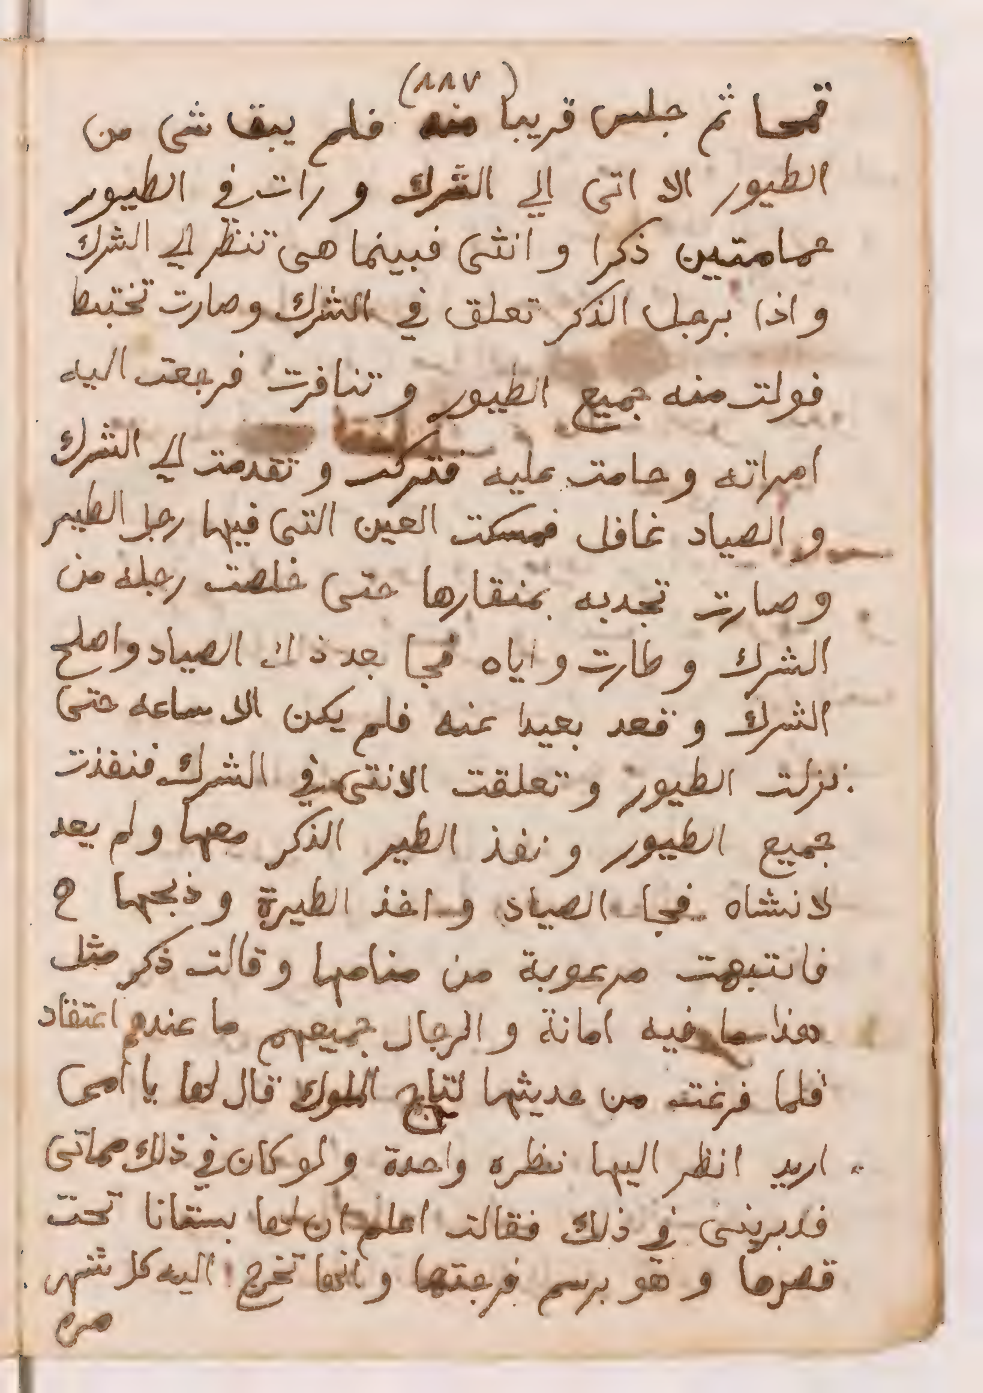 (٨٨٧)
قمحا ثم جلس قريبا منه فلم يبقا شى من
الطيور الا اتى الي الشرك و رات في الطيور
حمامتين ذكرا و انثى فبينما هى تنظر الي الشرك
و اذا برجل الذكر تعلق في الشرك وصارت تختبط
فولت منه جميع الطيور و تنافرت فرجعت اليه
امراته و حامت عليه فتركت و تقدمت الي الشرك
و الصياد غافل فمسكت العين التى فيها رجل الطير
و صارت تجدبه بمنقارها حتى خلصت رجله من
الشرك و طارت و اياه فجا بعد ذلك الصياد واصلح
الشرك و قعد بعيدا عنه فلم يكن الا ساعه حتى
نزلت الطيور و تعلقت الانتى في الشرك فنفذت
جميع الطيور و نفذ الطير الذكر معها و لم يعد
لانشاه فجا الصياد و اخذ الطيرة و ذبحها ح
فانتبهت مرعوبة من منامها و قالت ذكر مثل
هذا ما فيه امانة و الرجال جميعهم ما عندم اعتقاد
فلما فرغت من حديثها لتاج الملوك قال لها يا امى
اريد انظر اليها نظره واحدة و لو كان في ذلك مماتى
فدبرينى في ذلك فقالت اعلم ان لها بستانا تحت
قصرها و هو برسم فرجتها و انها تخرج اليه كل شهر
مره